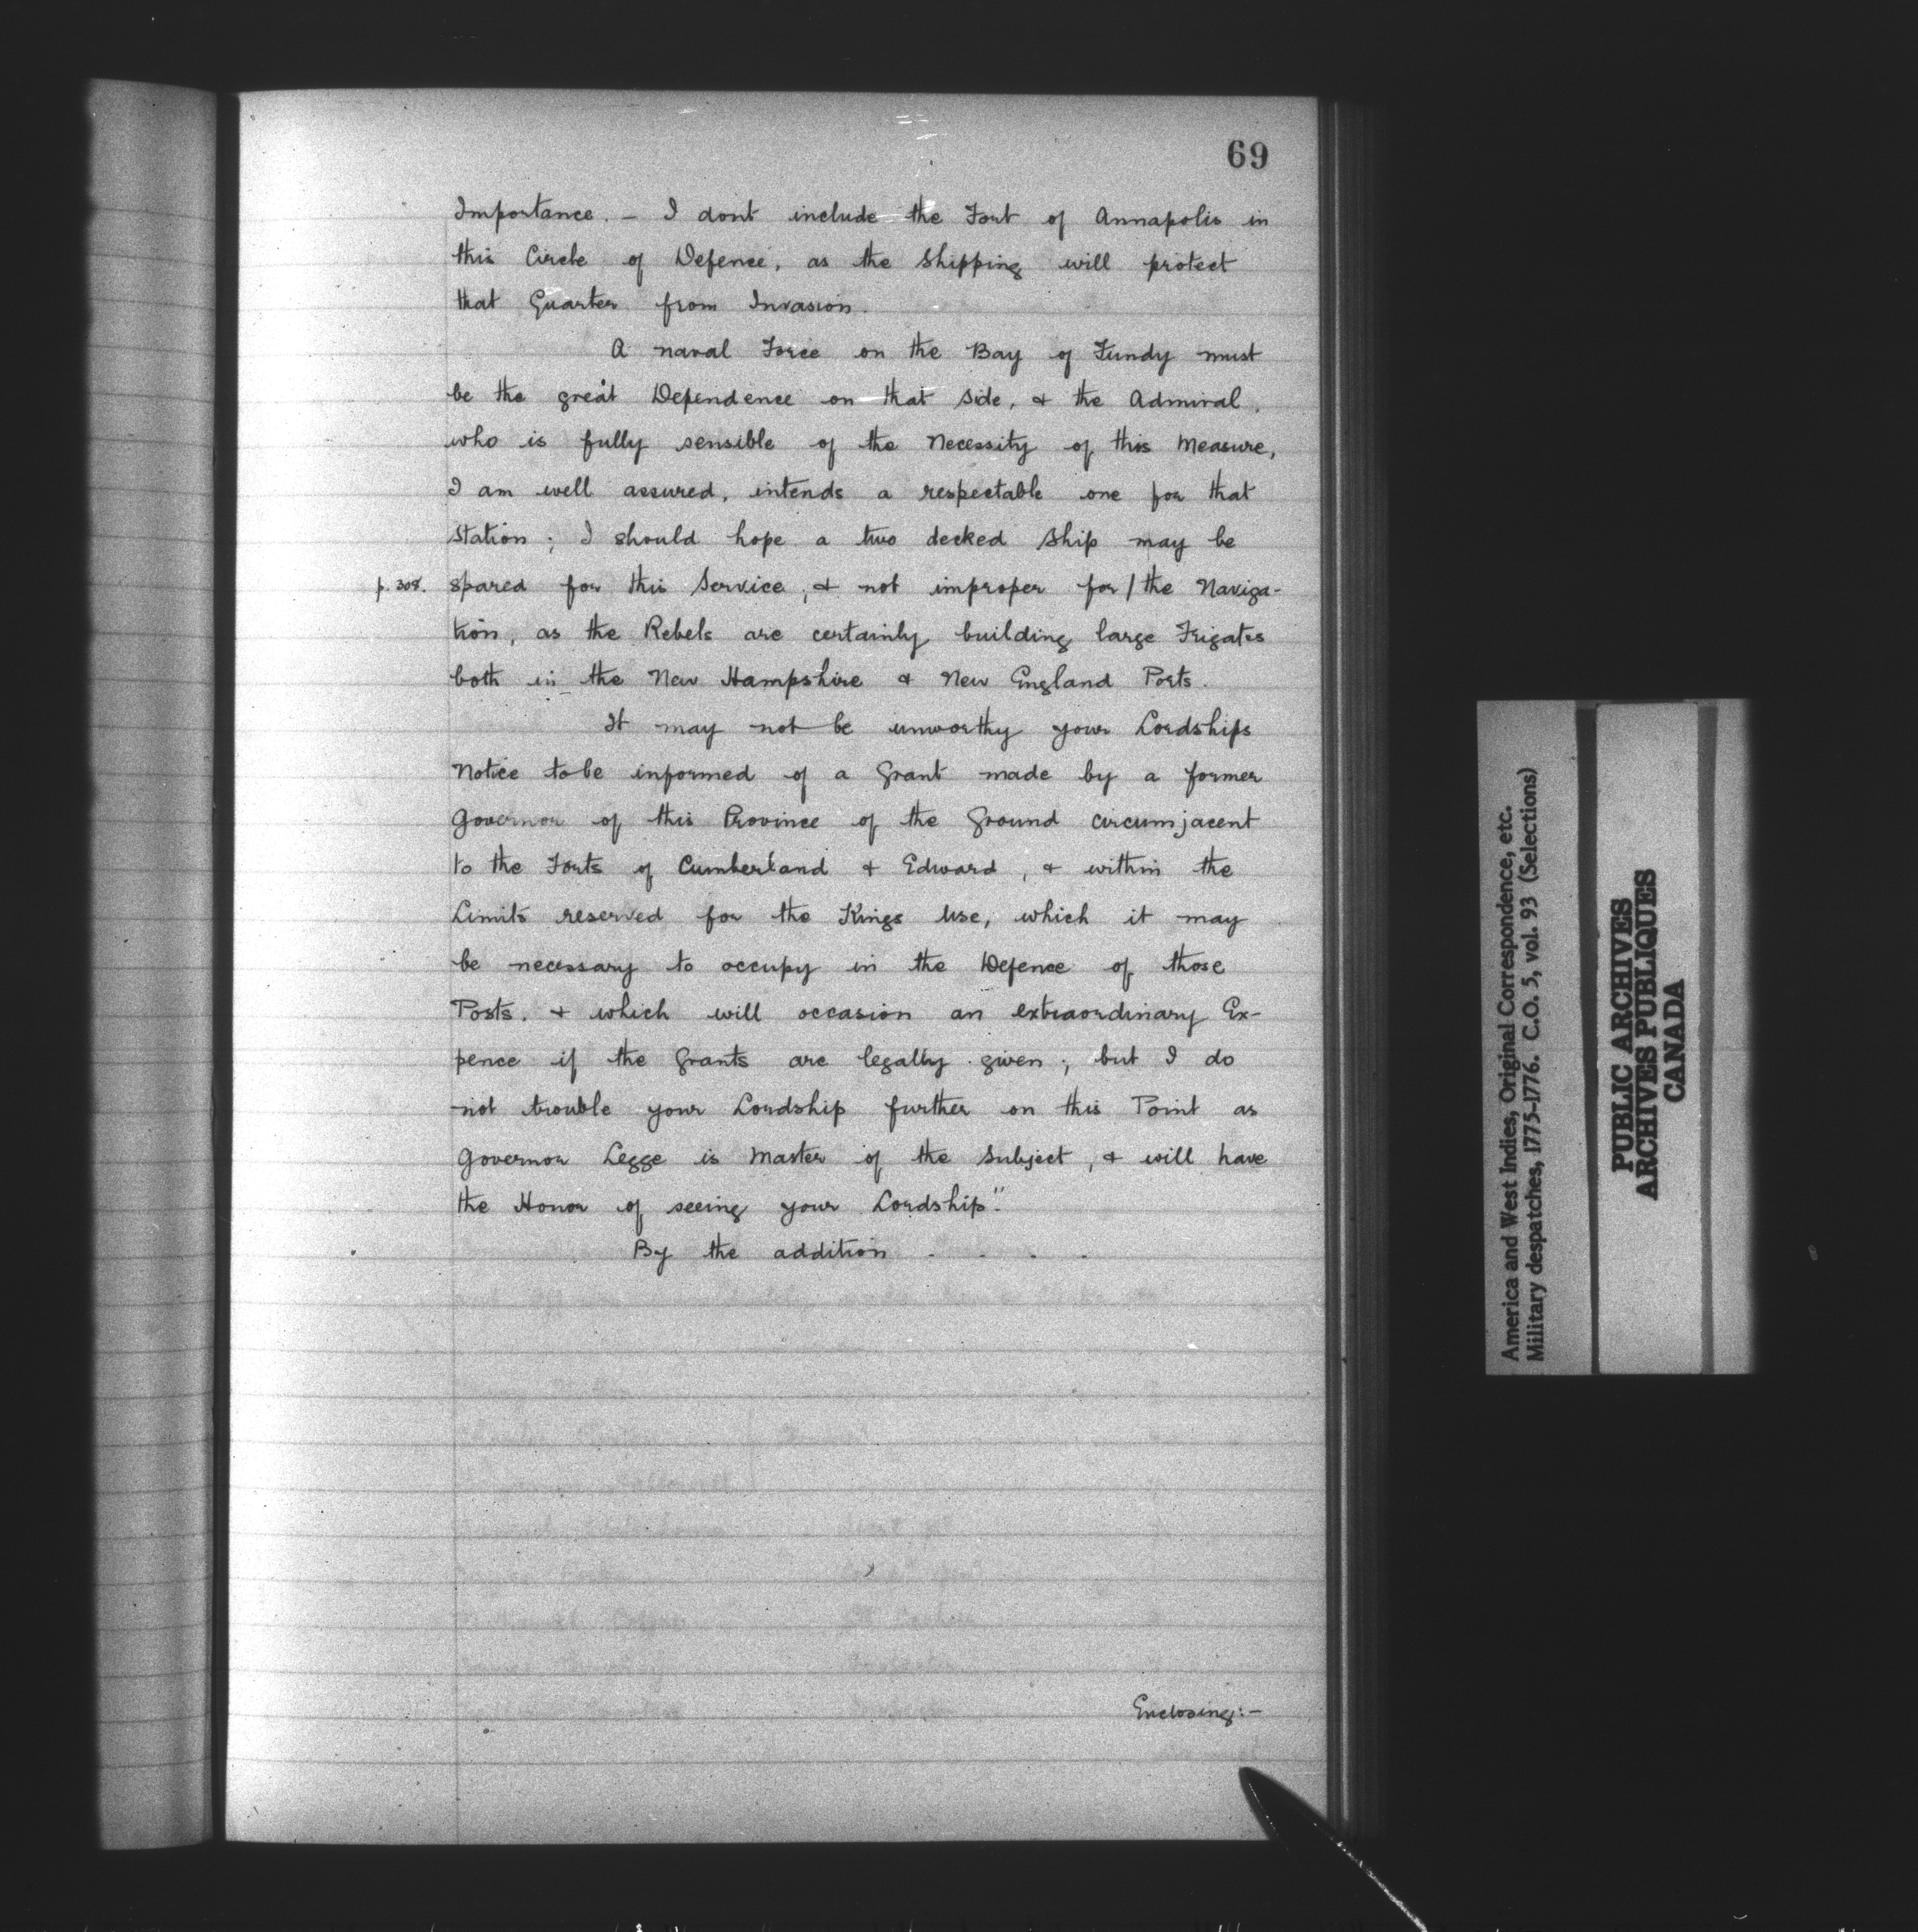 69
Importance. – I dont include the Fort of Annapolis in
this Circle of Defence, as the Shipping will protect
that Quarter from Invasion.
A naval Force on the Bay of Fundy must
be the great Dependence on that Side, & the Admiral,
who is fully sensible of the Necessity of this Measure,
I am well assured, intends a respectable one for that
Station; I should hope a two decked Ship may be
p. 308. spared for this Service, & not improper for / the Naviga-
tion, as the Rebels are certainly building large Frigates
both in the New Hampshire & New England Ports.
It may not be unworthy your Lordships
Notice to be informed of a Grant made by a former
Governor of this Province of the Ground circumjacent
to the Forts of Cumberland & Edward, & within the
Limits reserved for the Kings Use, which it may
be necessary to occupy in the Defence of those
Posts, & which will occasion an extraordinary Ex-
pence if the Grants are legally given; but I do
not trouble your Lordship further on this Point as
Governor Legge is Master of the Subject, & will have
the Honor of seeing your Lordship."
By the addition . . . .
Enclosing:–
America and West Indies, Original Correspondence, etc.
Military despatches, 1775-1776. C.O. 5, vol. 93 (Selections)
PUBLIC ARCHIVES
ARCHIVES PUBLIQUES
CANADA